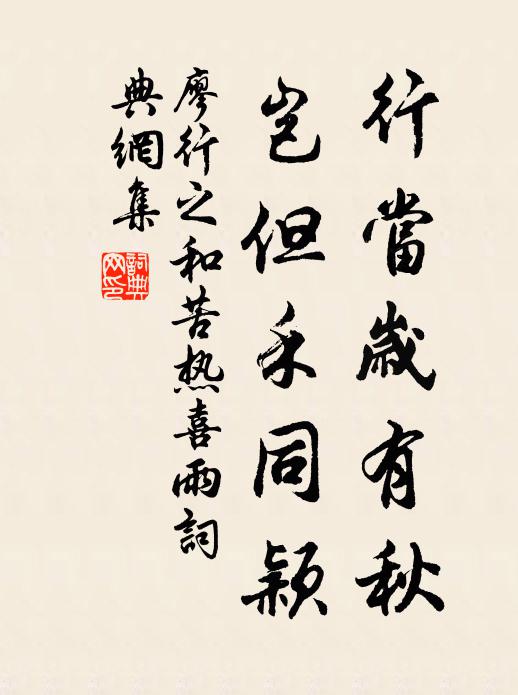 行當歲有秋
豈但禾同穎
廖行之和苦熱喜雨詞
典網集
詞典網印